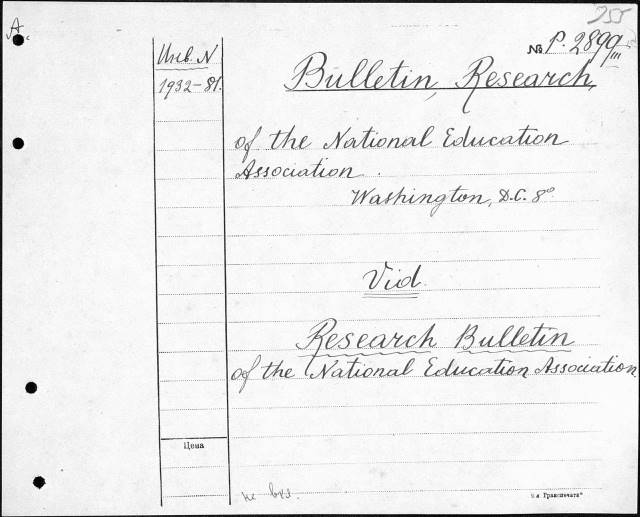 255
A.
Инв. N
№ P. 2899/III
1932-81.
Bulletin, Research,
of the National Education
Association.
Washington, D.C. 8°
Vid.
Research Bulletin
of the National Education Association
Цена
не вкл.